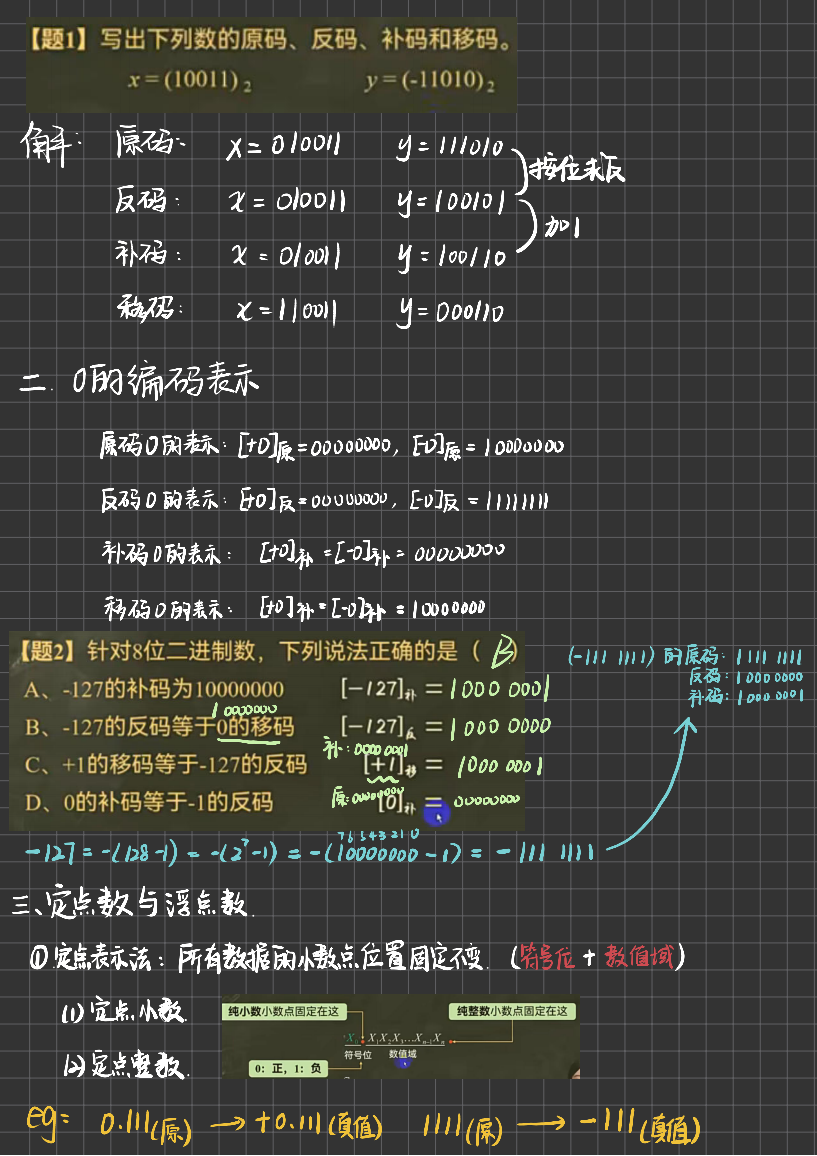 【题1】写出下列数的原码、反码、补码和移码。
x = (10011)₂ y = (-11010)₂
解: 原码: x = 010011 y = 111010
按位求反
反码: x = 010011 y = 100101
加1
补码: x = 010011 y = 100110
移码: x = 110011 y = 000110
二. 0的编码表示
原码0的表示: [+0]原 = 00000000, [-0]原 = 10000000
反码0的表示: [+0]反 = 00000000, [-0]反 = 11111111
补码0的表示: [+0]补 = [-0]补 = 00000000
移码0的表示: [+0]补 = [-0]补 = 10000000
【题2】针对8位二进制数，下列说法正确的是（ B ）
A、-127的补码为10000000 [-127]补 = 1000 0001
1 0000000
B、-127的反码等于0的移码 [-127]反 = 1000 0000
补: 0000 0001
C、+1的移码等于-127的反码 [+1]移 = 1000 0001
D、0的补码等于-1的反码 原: 00000000 [0]补 = 00000000
(-111 1111) 的原码: 1111 1111
反码: 1000 0000
补码: 1000 0001
7 6 5 4 3 2 1 0
-127 = -(128-1) = -(2⁷-1) = -(10000000 - 1) = - 111 1111
三、定点数与浮点数.
① 定点表示法: 所有数据的小数点位置固定不变. (符号位 + 数值域)
(1) 定点小数.
纯小数小数点固定在这 纯整数小数点固定在这
X₁X₂X₃…Xₙ₋₁Xₙ
符号位 数值域
0：正，1：负
(2) 定点整数.
eg: 0.111(原) → +0.111(真值) 1111(原) → -111(真值)